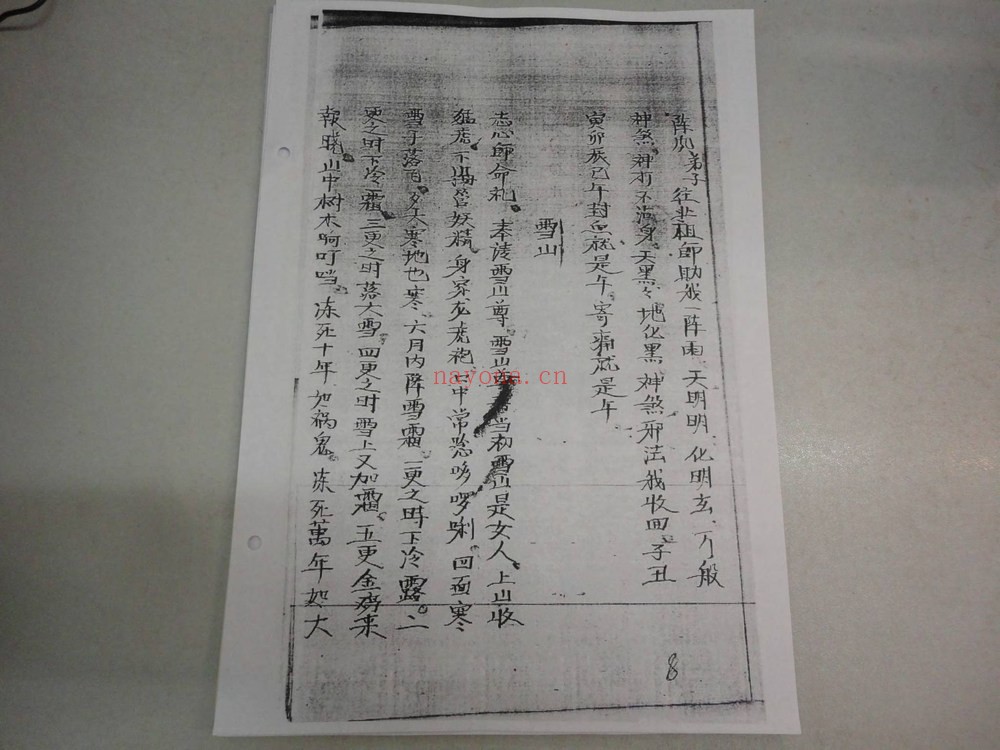 阵风弟子往北祖师助我一阵雨天明明化明玄万般
神煞神打不满身天黑々地化黑神煞邪法我收回子丑
寅卯辰巳午封血就是午寄痛就是午
雪山
志心即命礼奉请雪山尊雪山当初雪山是女人上山收
猛虎下山捉妖精身穿龙虎袍口中常念哆啰唎四面寒
雪子落百夕天寒地也寒六月内降雪霜一更之时下冷露二
更之时下冷霜三更之时落大雪四更之时雪上又加霜五更金鸡来
報晓山中树木响叮噹冻死十年加祸鬼冻死萬年如大
8
nayona.cn